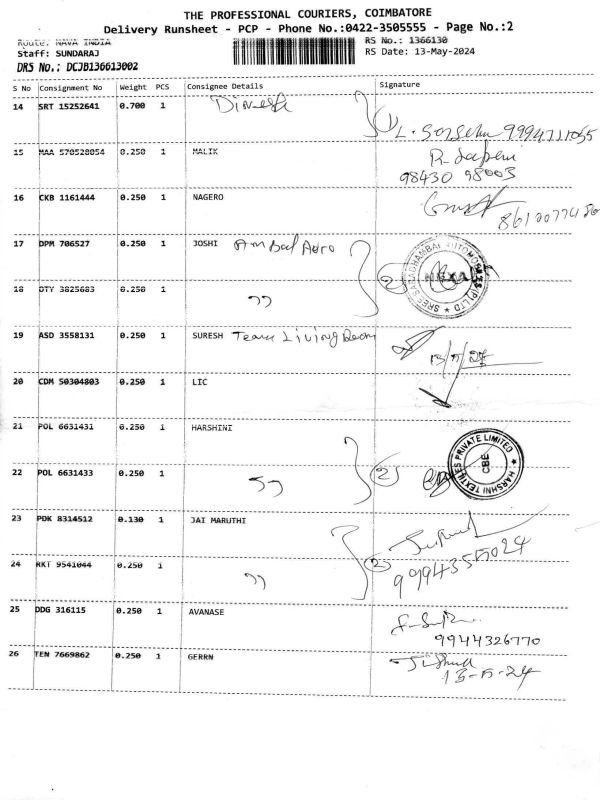 THE PROFESSIONAL COURIERS, COIMBATORE
Delivery Runsheet - PCP - Phone No.:0422-3505555 - Page No.:2
Route: NAVA INDIA
RS No.: 1366130
Staff: SUNDARAJ
RS Date: 13-May-2024
DRS No.: DCJB136613002
S No Consignment No Weight PCS Consignee Details Signature
14 SRT 15252641 0.700 1 Dinesh
9994711055
15 MAA 570528054 0.250 1 MALIK
98430 98003
16 CKB 1161444 0.250 1 NAGERO
17 DPM 706527 0.250 1 JOSHI Ambal Auto
2
SREE SARADHAMBAL AUTOMOBILES (P) LTD
NEXA
18 DTY 3825683 0.250 1 ,,
19 ASD 3558131 0.250 1 SURESH Team Living Room
13/5/24
20 CDM 50304803 0.250 1 LIC
21 POL 6631431 0.250 1 HARSHINI
HARSHNI TEXTILES PRIVATE LIMITED
CBE
22 POL 6631433 0.250 1 ,,
2
23 PDK 8314512 0.130 1 JAI MARUTHI
2
24 RKT 9541044 0.250 1 ,,
25 DDG 316115 0.250 1 AVANASE
9944326770
26 TEN 7669862 0.250 1 GERRN
13-5-24